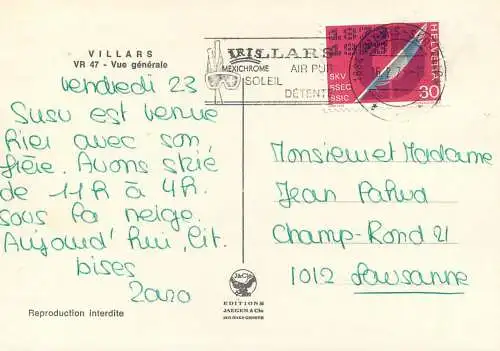 VILLARS
VR 47 - Vue générale
vendredi 23
Susu est venue
hier avec son
frère. Avons skié
de 11h à 4h
sous la neige.
Aujourd'hui, lit.
bises
Reproduction interdite
J&Cie
EDITIONS
JAEGER & Cie
VILLARS
MEXICHROME
AIR PUR
SOLEIL
DÉTENTE
SKV
SSEC
SSIC
HELVETIA
30
Monsieur et Madame
Jean Pahud
Champ-Rond 21
1012 Lausanne